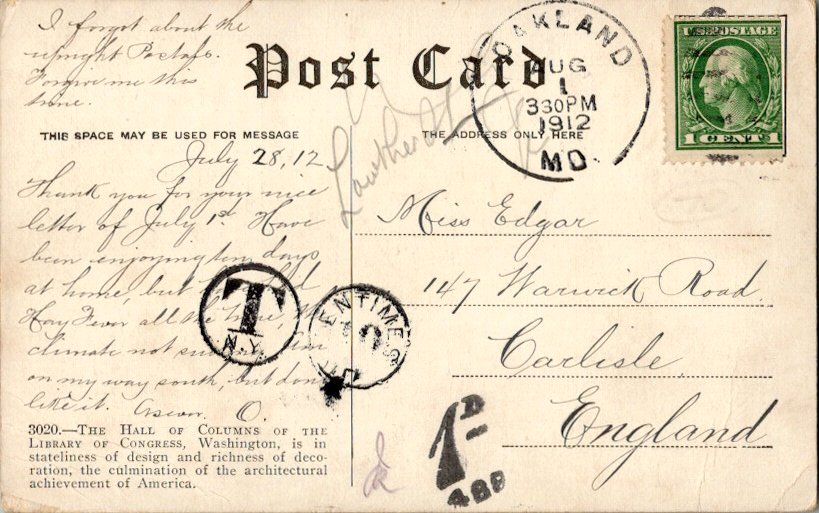 I forgot about the
upright Postals.
Forgive me this
time.
Post Card
THIS SPACE MAY BE USED FOR MESSAGE
THE ADDRESS ONLY HERE
OAKLAND
AUG
1
330PM
1912
MD.
U.S. POSTAGE
1 CENT 1
July 28, 12
Thank you for your nice
letter of July 1st. Have
been enjoying ten days
at home, but
Hay Fever all the time,
climate not
on my way south, but dont
like it. O.
T
N.Y.
CENTIMES
10
Miss Edgar
147 Warwick Road.
Carlisle.
England
1D
3020.—The Hall of Columns of the
Library of Congress, Washington, is in
stateliness of design and richness of deco-
ration, the culmination of the architectural
achievement of America.